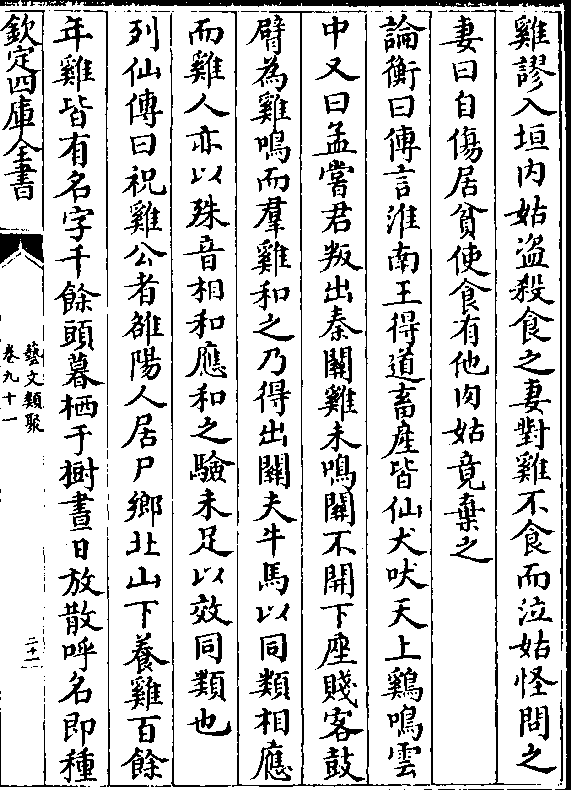 雞謬入垣内姑盗殺食之妻對雞不食而泣姑怪問之
妻曰自傷居貧使食有他肉姑竟棄之
論衡曰傳言淮南王得道畜産皆仙犬吠天上鷄鳴雲
中又曰孟嘗君叛出秦關雞未鳴關不開下座賤客鼓
臂為雞鳴而羣雞和之乃得出關夫牛馬以同類相應
而雞人亦以殊音相和應和之驗未足以效同類也
列仙傳曰祝雞公者雒陽人居尸鄉北山下養雞百餘
年雞皆有名字千餘頭暮栖于樹晝日放散呼名即種
欽定四庫全書
藝文類聚
卷九十一
二十一